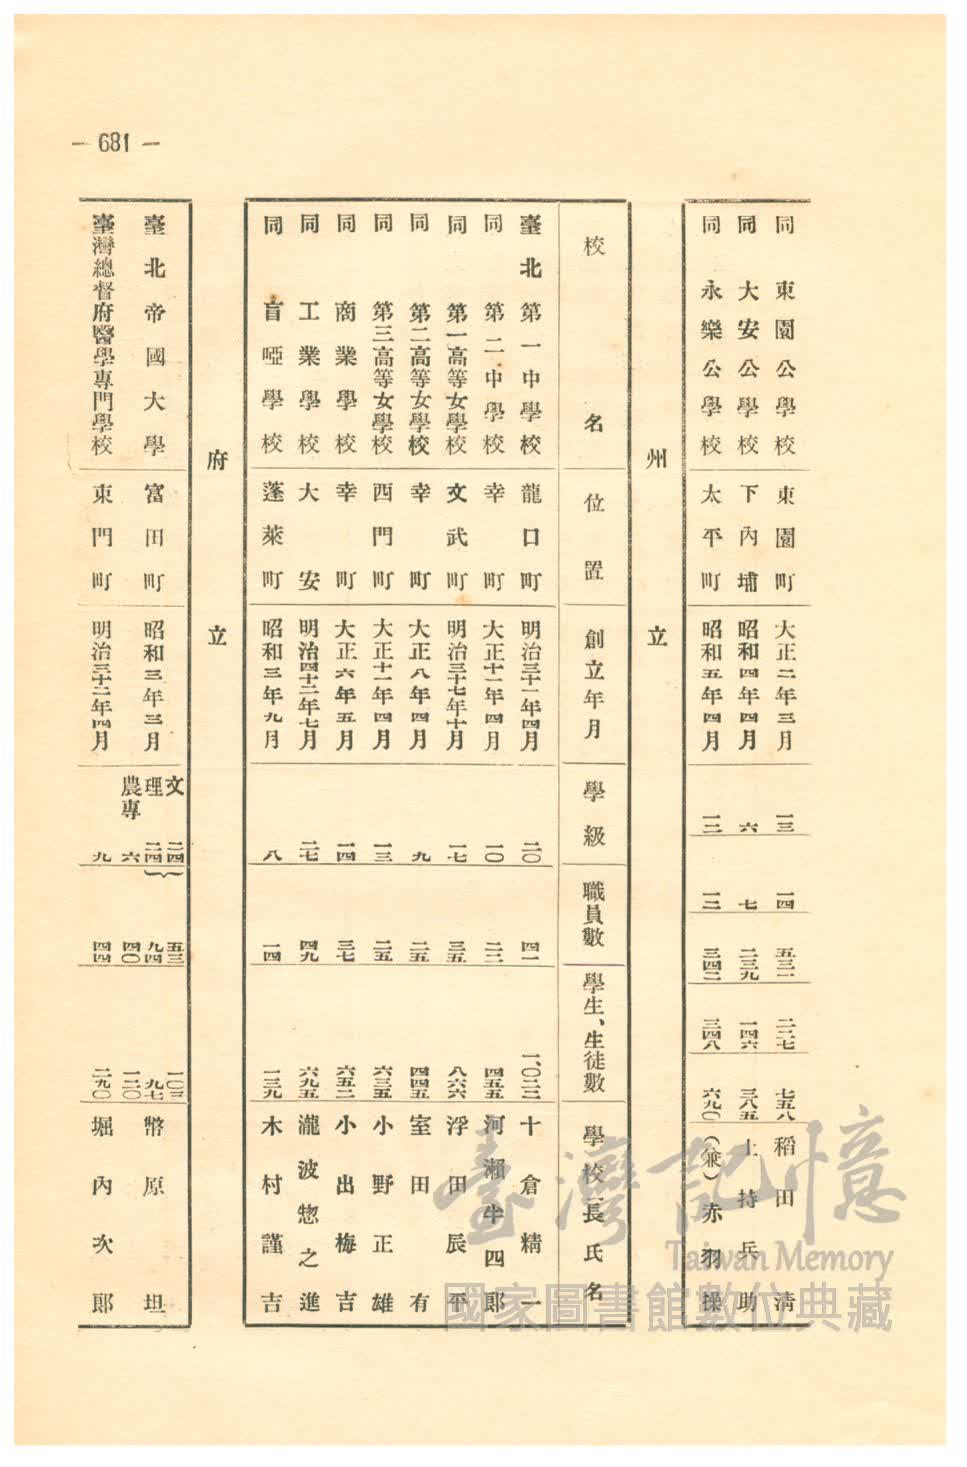 — 681 —
同 東園公學校 東園町 大正二年三月 一三 一四 五三一 二二七 七五八 稻田清
同 大安公學校 下內埔 昭和四年四月 六 七 二三九 一四六 三八五 土持兵助
同 永樂公學校 太平町 昭和五年四月 一二 一三 三四二 三四八 六九〇 (兼)赤羽操
州立
校名 位置 創立年月 學級 職員數 學生、生徒數 學校長氏名
臺北第一中學校 龍口町 明治三十一年四月 二〇 四一 一、〇二三 十倉精一
同 第二中學校 幸町 大正十一年四月 一〇 二三 四五五 河瀨半四郎
同 第一高等女學校 文武町 明治三十七年十月 一七 三五 八六六 浮田辰平
同 第二高等女學校 幸町 大正八年四月 九 二五 四四五 室田有
同 第三高等女學校 西門町 大正十一年四月 一三 二五 六三五 小野正雄
同 商業學校 幸町 大正六年五月 一四 三七 六五二 小出梅吉
同 工業學校 大安 明治四十二年七月 二七 四九 六九五 瀧波惣之進
同 盲啞學校 蓬萊町 昭和三年九月 八 一四 一三九 木村謹吉
府立
臺北帝國大學 富田町 昭和三年三月 文 二四 理 二四 農專 六 五三 九四 四〇 一〇三 九七 一二〇 幣原坦
臺灣總督府醫學專門學校 東門町 明治三十二年四月 九 四四 二九〇 堀內次郎
臺灣記憶
Taiwan Memory
國家圖書館數位典藏